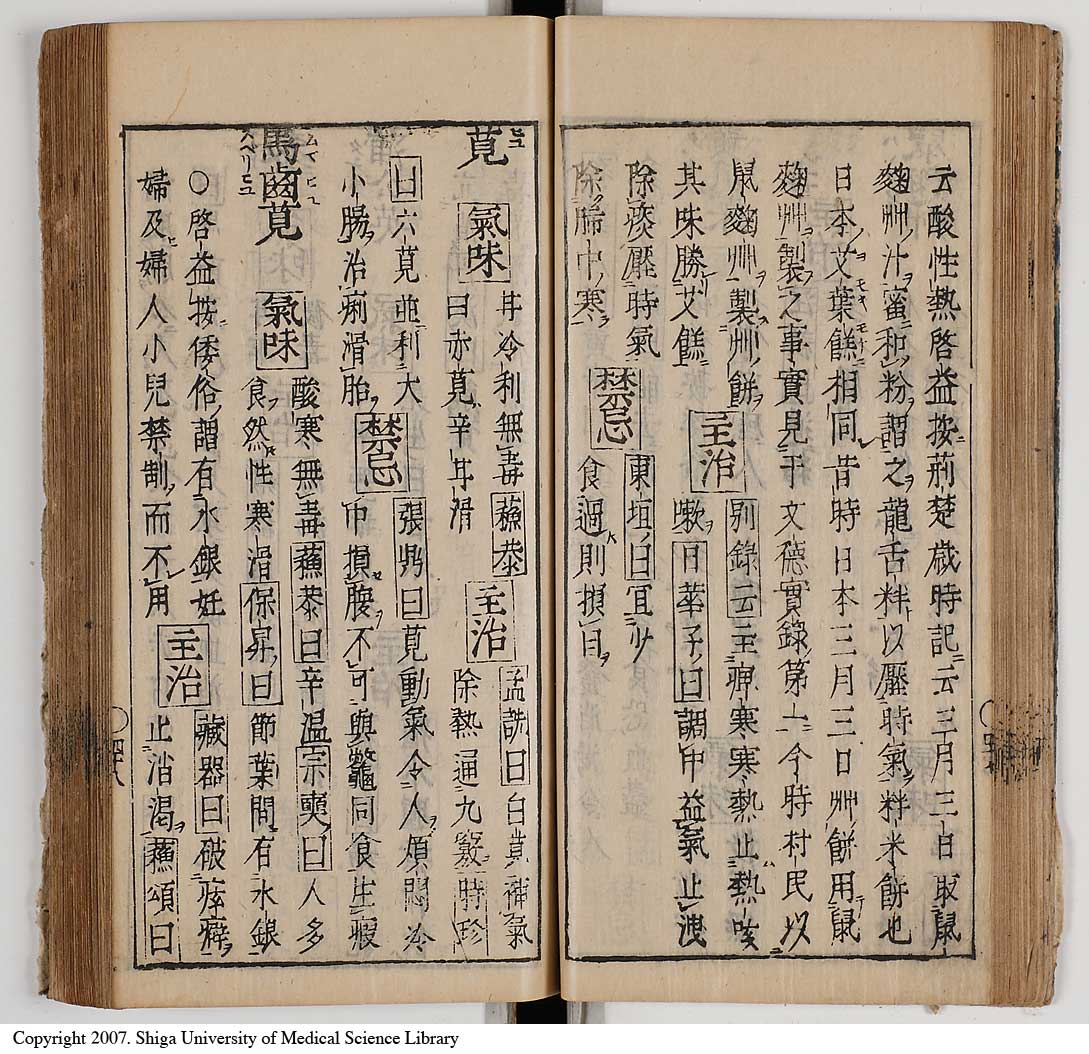 云酸性熱啓益按荊楚歳時記云三月三日取鼠
麹艸汁蜜和粉謂之龍舌以壓時氣米餅也
日本艾葉餻相同昔時日本三月三日艸餅用鼠
麹艸製之事實見于文徳實錄第一今時村民以
鼠麹艸製艸餅其味勝艾餻
主治
別錄云主痺寒寒熱止熱咳
嗽日華子曰調中益氣止洩
除痰壓時氣
東垣曰宜少
除肺中寒
禁忌
食過則損目
莧
ヒユ
氣味
甘冷利無毒蘇恭
曰赤莧辛甘滑
主治
孟詵曰白莧補氣
除熱通九竅時珍
曰六莧並利大
小腸治痢滑胎
禁忌
張鼎曰莧動氣令人煩悶冷
中損腹不可與鼈同食生瘕
馬齒莧
ムマヒユ
スベリヒユ
氣味
酸寒無毒蘇恭曰辛温宗奭曰人多
食然性寒滑保昇曰節葉間有水銀
○啓益按倭俗謂有水銀妊
婦及婦人小兒禁制而不用
主治
藏器曰破痃癖
止消渴蘇頌曰
Copyright 2007. Shiga University of Medical Science Library